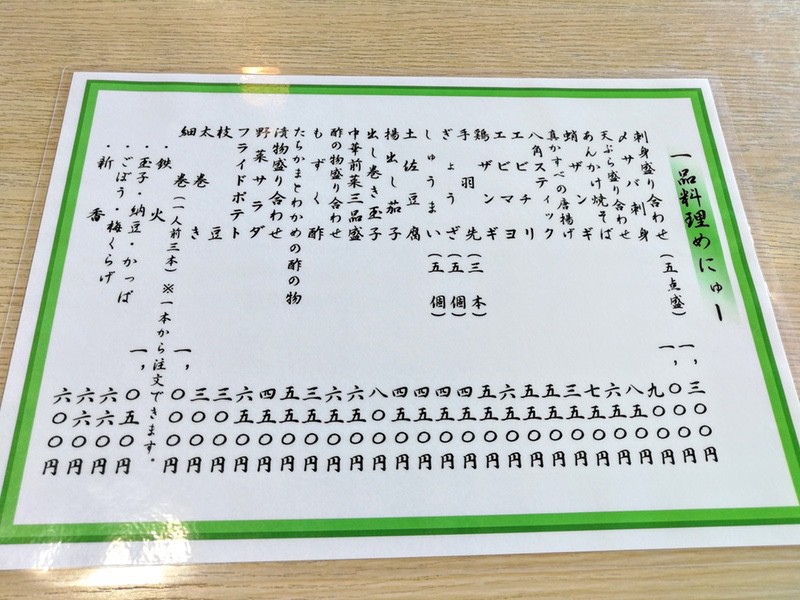 一品料理めにゅー
刺身盛り合わせ(五点盛) 一,三〇〇円
〆サバ刺身 一,〇〇〇円
天ぷら盛り合わせ 九〇〇円
あんかけ焼そば 八五〇円
蛸ザンギ 六五〇円
真かすべの唐揚げ 七五〇円
八角スティック 三五〇円
エビチリ 五五〇円
エビマヨ 五五〇円
鶏ザンギ 六五〇円
手羽先(三本) 五五〇円
ぎょうざ(五個) 四五〇円
しゅうまい(五個) 四五〇円
土佐豆腐 四五〇円
揚出し茄子 四五〇円
出し巻き玉子 八〇〇円
中華前菜三品盛 六五〇円
酢の物盛り合わせ 六五〇円
もずく酢 三五〇円
たらかまとわかめの酢の物 五五〇円
漬物盛り合わせ 四五〇円
野菜サラダ 六五〇円
フライドポテト 三〇〇円
枝豆 三〇〇円
太巻き 一,〇〇〇円
細巻(一人前三本)※一本から注文できます。
・鉄火 一,〇五〇円
・玉子・納豆・かっぱ 六六〇円
・ごぼう・梅くらげ 六六〇円
・新香 六〇〇円